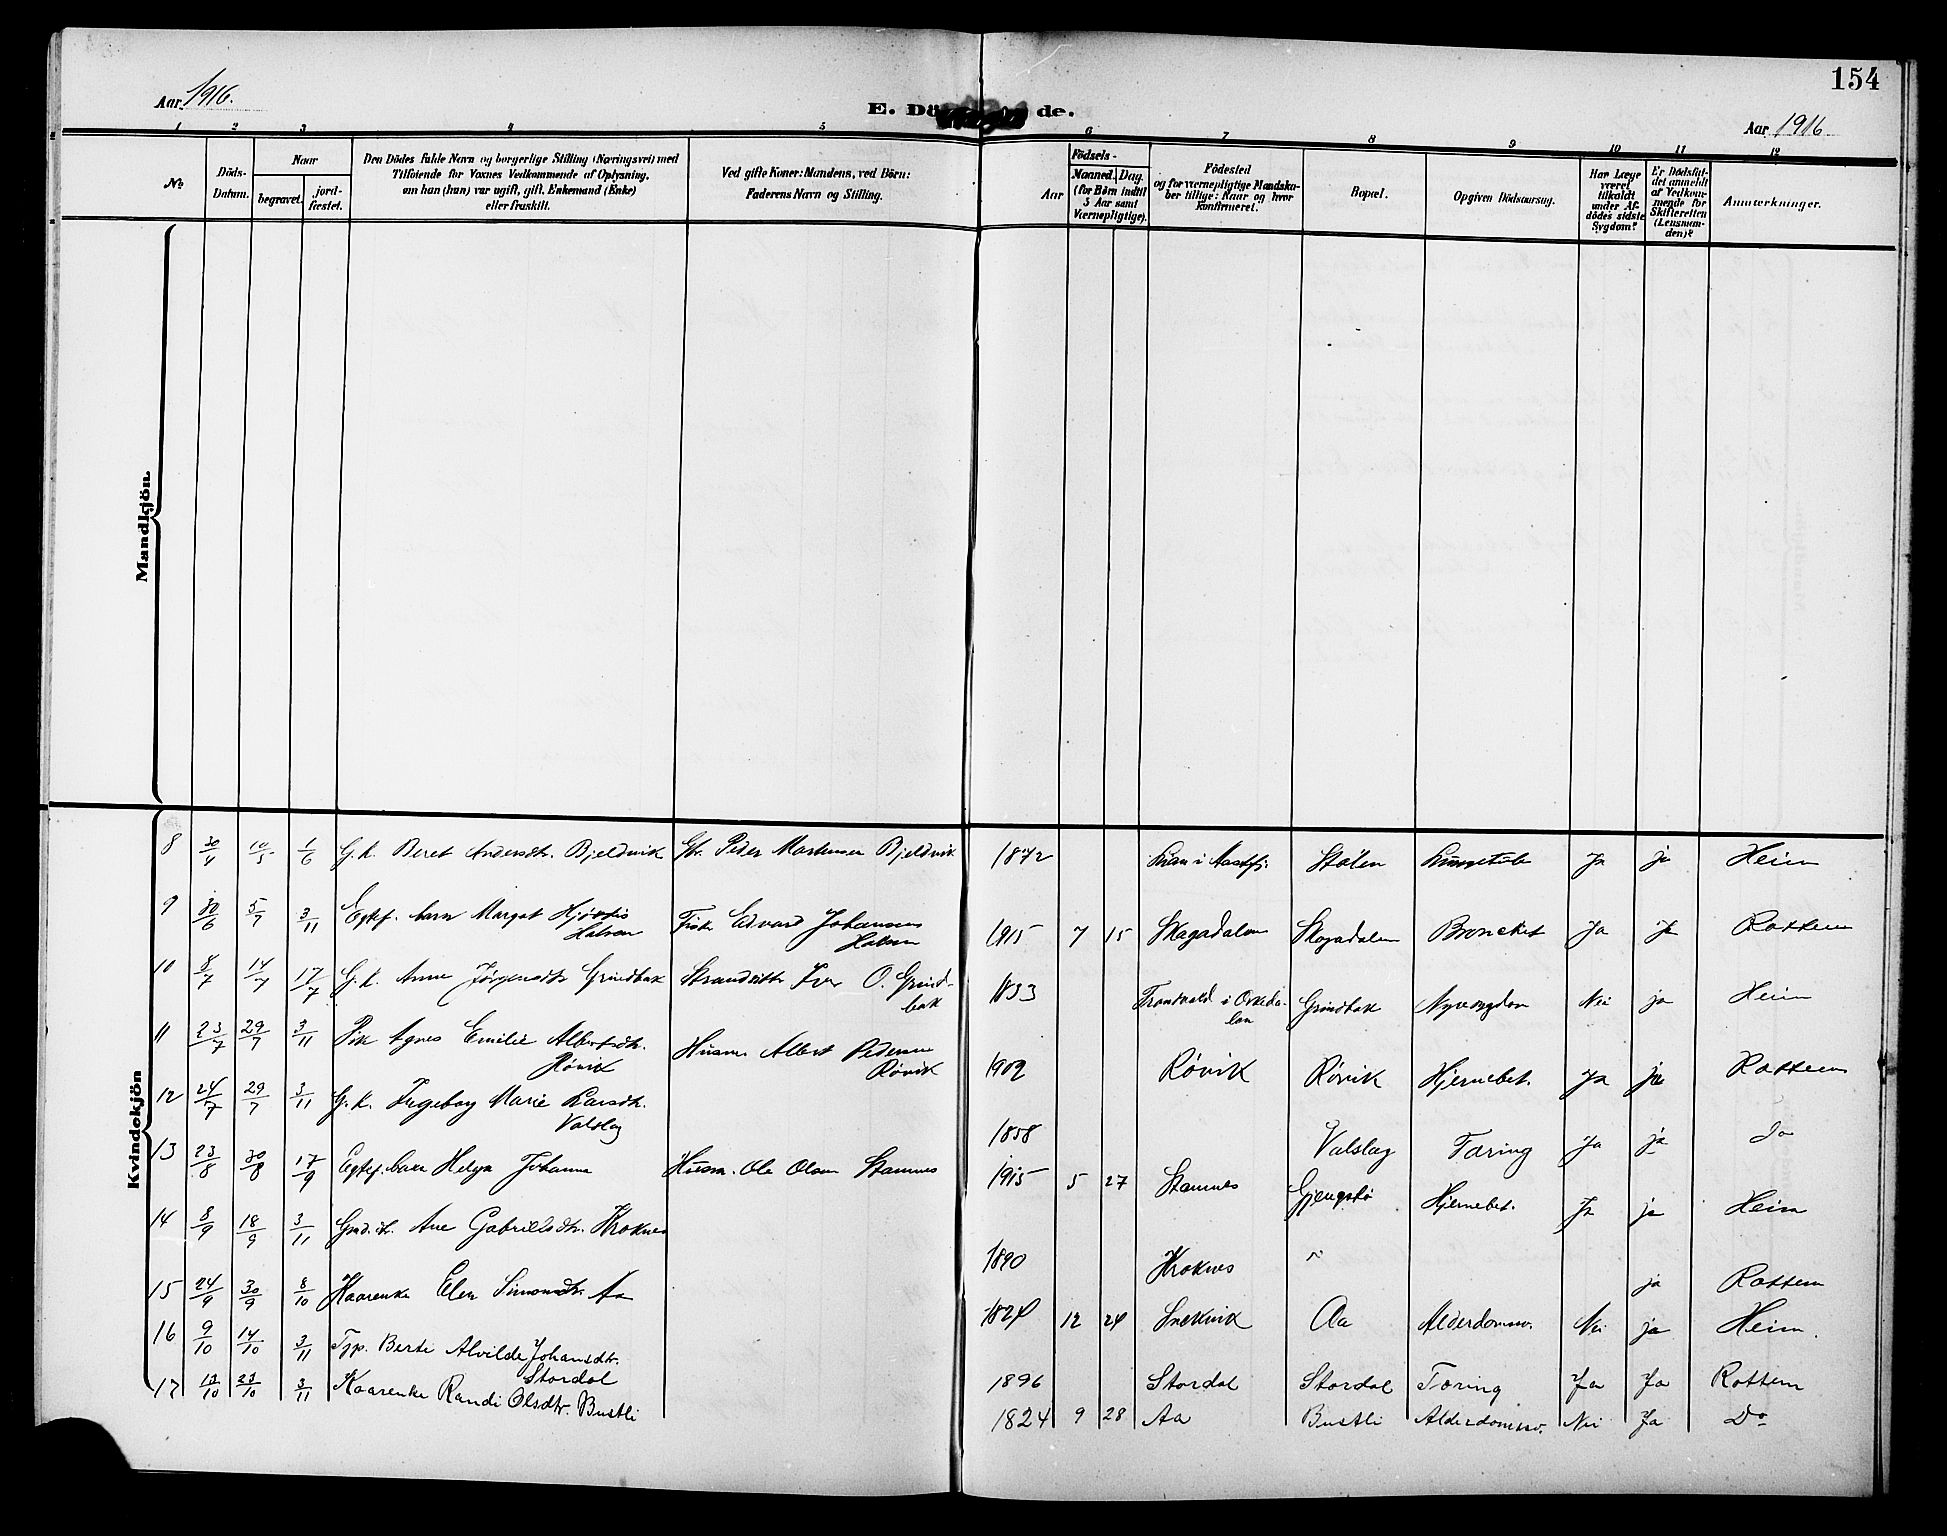 154
Aar 1916.
E. Dö de.
Aar 1916
1 2 3 4 5 6 7 8 9 10 11 12
No
Döds-
Datum.
Naar
begravet.
jord-
fæstet.
Den Dödes fulde Navn og borgerlige Stilling (Næringsvei) med
Tilföiende for Voxnes Vedkommende af Oplysning,
om han (hun) var ugift, gift, Enkemand (Enke)
eller fraskilt.
Ved gifte Koner: Mandens, ved Börn:
Faderens Navn og Stilling.
Födsels-
Aar
Maaned. Dag.
(for Börn indtil
5 Aar samt
Værnepligtige).
Födested
og for værnepligtige Mandska-
ber tillige: Naar og hvor
konfirmeret.
Bopæl.
Opgiven Dödsaarsag.
Har Læge
været
tilkaldt
under Af-
dödes sidste
Sygdom?
Er Dödsfal-
det anmeldt
af Vedkom-
mende for
Skifteretten
(Lensman-
den)?
Anmærkninger.
Mandkjön.
Kvindekjön
8 30/4 10/5 1/6 G.k. Beret Andersdtr. Bjeldnvik Gbr. Peder Mortensen Bjeldnvik 1872 Stölen Ja ja Heim
9 30/6 5/7 3/11 Egtef. barn Margot Hjördis Fisk. Edvard Johansens 1915 7 15 Skagadalen Skagadalen Broncket Ja ja Rottem
Halsen Halsen
10 8/7 14/7 17/7 G.k. Anne Jörgensdtr Grindbak Strandsitter Iver O. Grind- 1833 Grindbak Nyresygdom Nei ja Heim
bak i Orkeda-
len
11 23/7 29/7 3/11 Pike Agnes Emilie Albertsdtr. Husm. Albert Pedersen 1902 Rövik Rövik Hjernebet. Ja ja Rottem
Rövik Rövik
12 24/7 29/7 3/11 G.k. Ingeborg Marie Larsdtr. 1858 Valslag Tæring Ja ja Do
Valslag
13 23/8 30/8 17/9 Egtef. barn Helga Johanne Husm. Ole Olsen Stamnes 1915 5 27 Stamnes Gjengstö Hjernebet. Ja ja Heim
14 8/9 18/9 3/11 Ane Gabrielsdtr. Kroknes 1890 Kroknes " ja Rottem
15 24/9 30/9 8/10 Kaarenke Elen Simonsdtr. Aa 1824 12 24 Snekvik Aa Alderdomssv. Nei ja Heim.
16 9/10 14/10 3/11 Tjp. Berti Alvilde Johansdtr. 1896 Stordal Stordal Tæring Ja Ja Rottem
Stordal
17 13/10 23/10 3/11 Kaarenke Randi Olsdtr. Bustli 1824 9 28 Aa Bustli Alderdomssv. Nei Ja Do